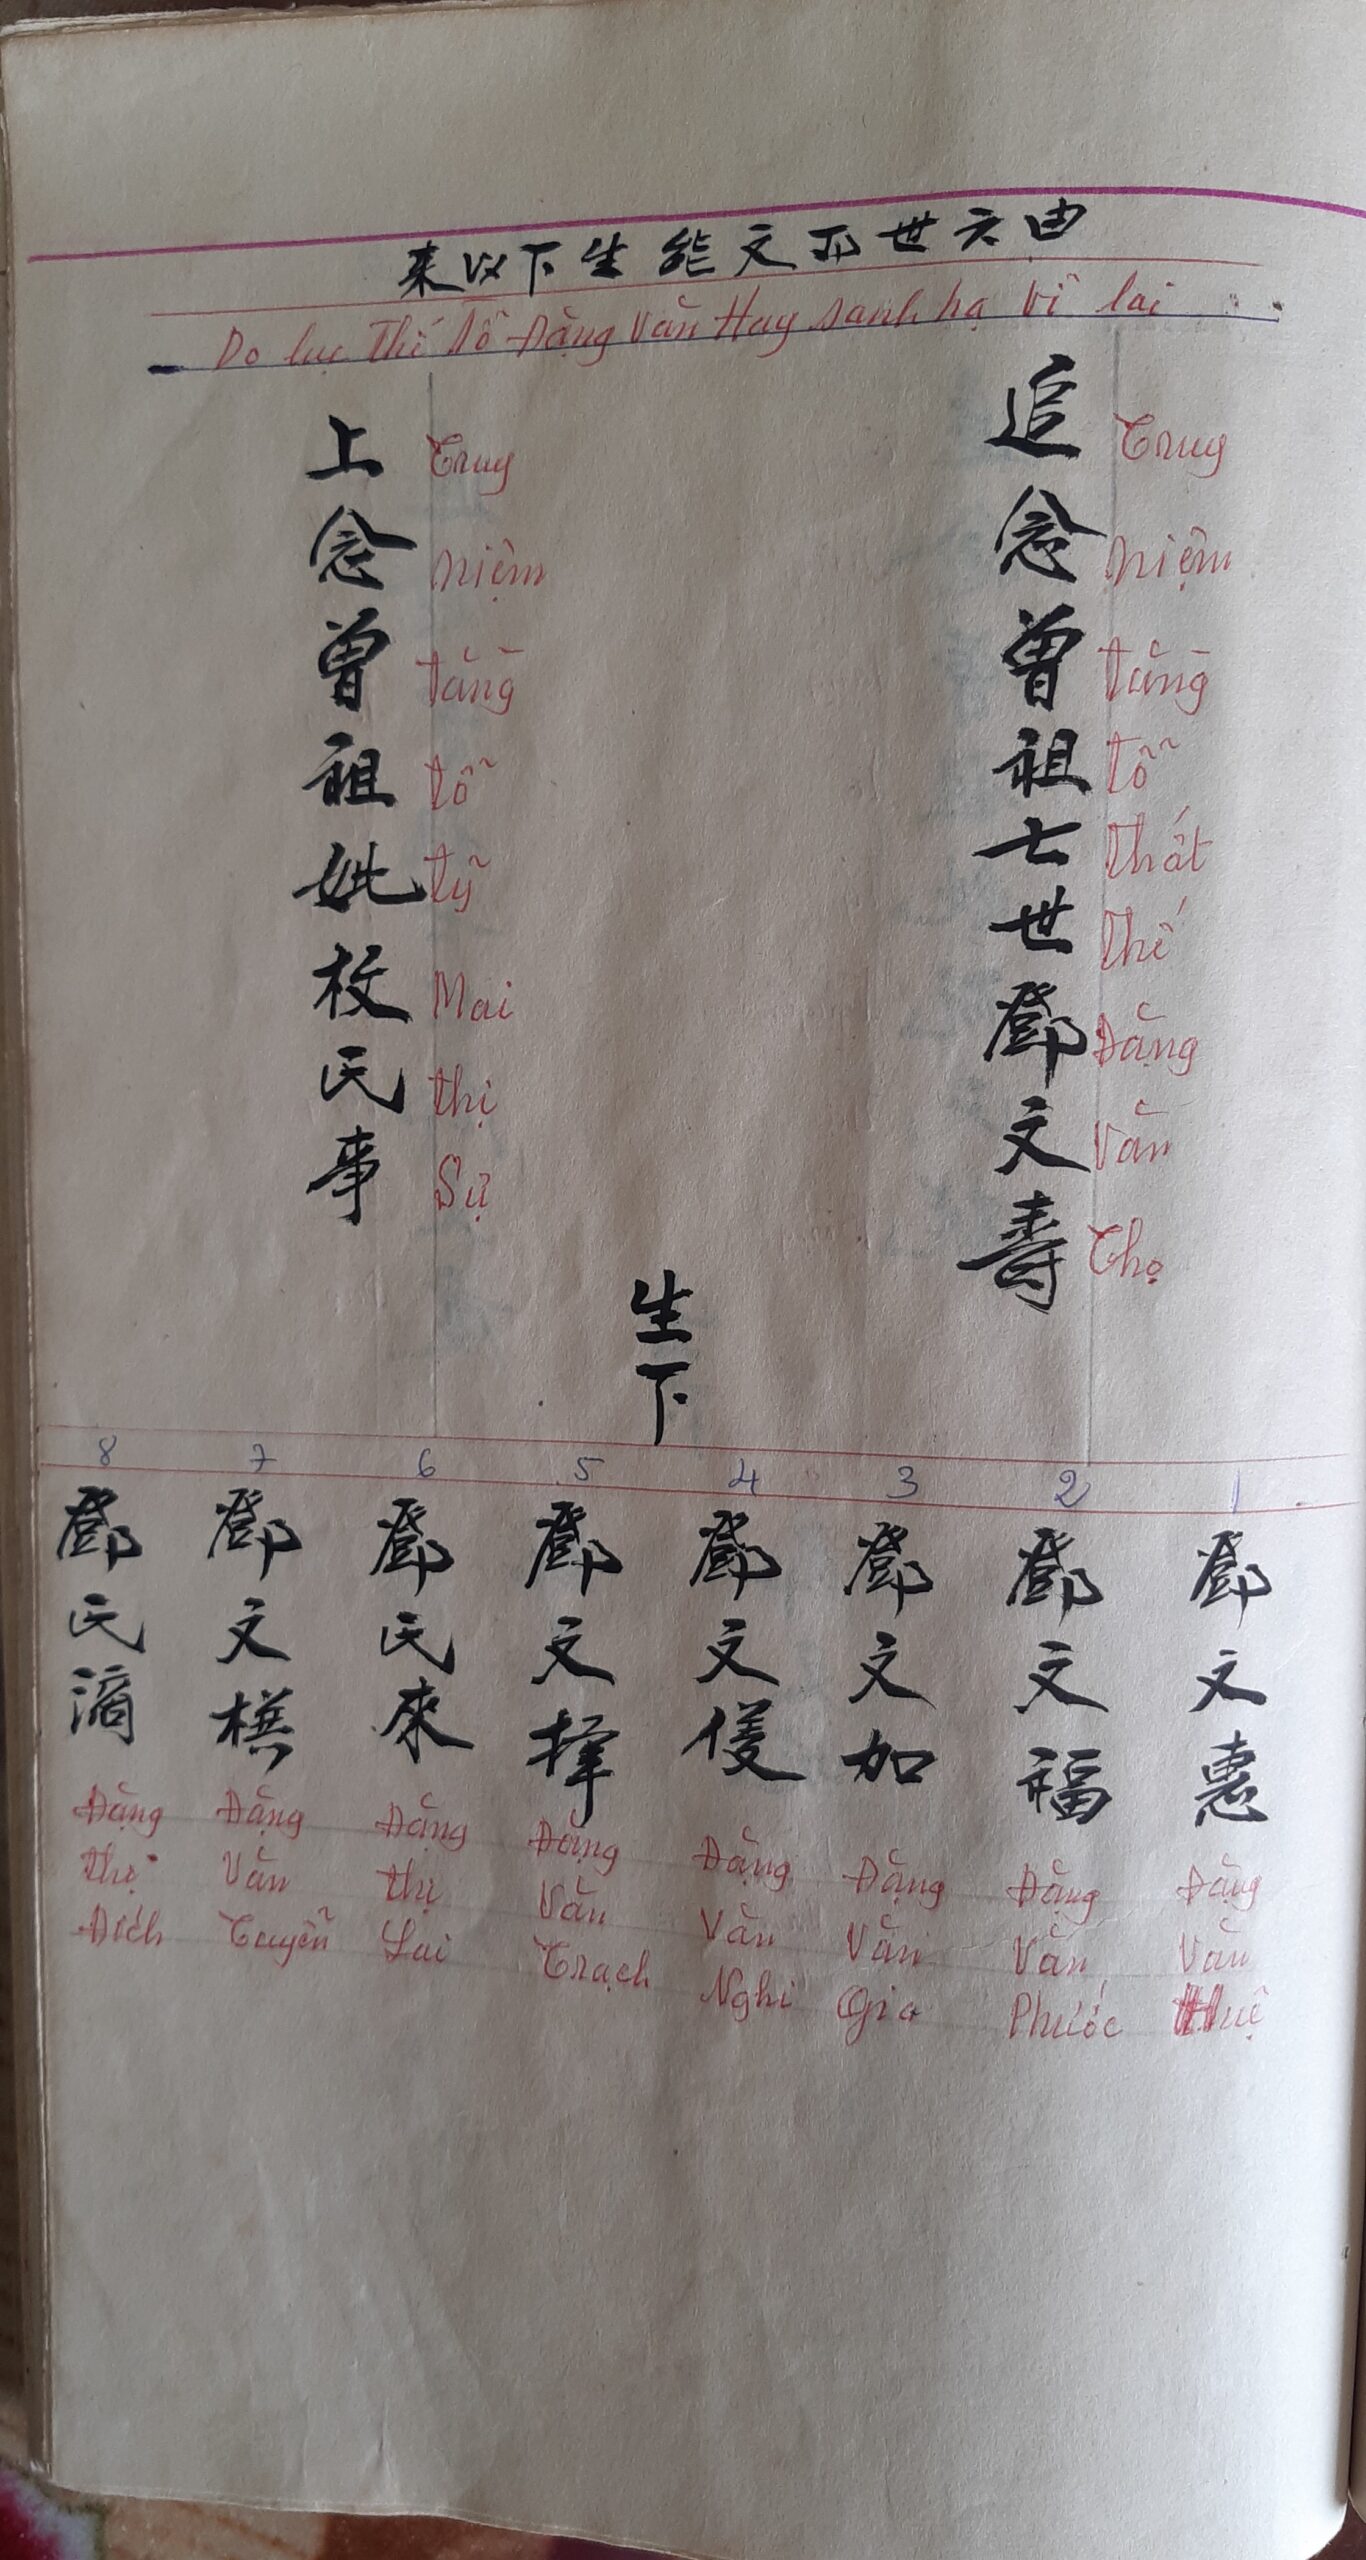 由六世祖文能生下以來
Do lục Thế Tổ Đặng Văn Hay sanh hạ vi lai
追念曾祖七世鄧文壽
Truy niệm tằng tỗ thất thế Đặng Văn Thọ
上念曾祖妣枚氏事
Truy niệm tằng tỗ tỹ Mai thị Sự
生下
1 2 3 4 5 6 7 8
鄧文惠
Đặng Văn Huệ
鄧文福
Đặng Văn Phước
鄧文加
Đặng Văn Gia
鄧文
Đặng Văn Nghi
鄧文擇
Đặng Văn Trạch
鄧氏來
Đặng thị Lai
鄧文
Đặng Văn Tuyễn
鄧氏滴
Đặng thị Đích